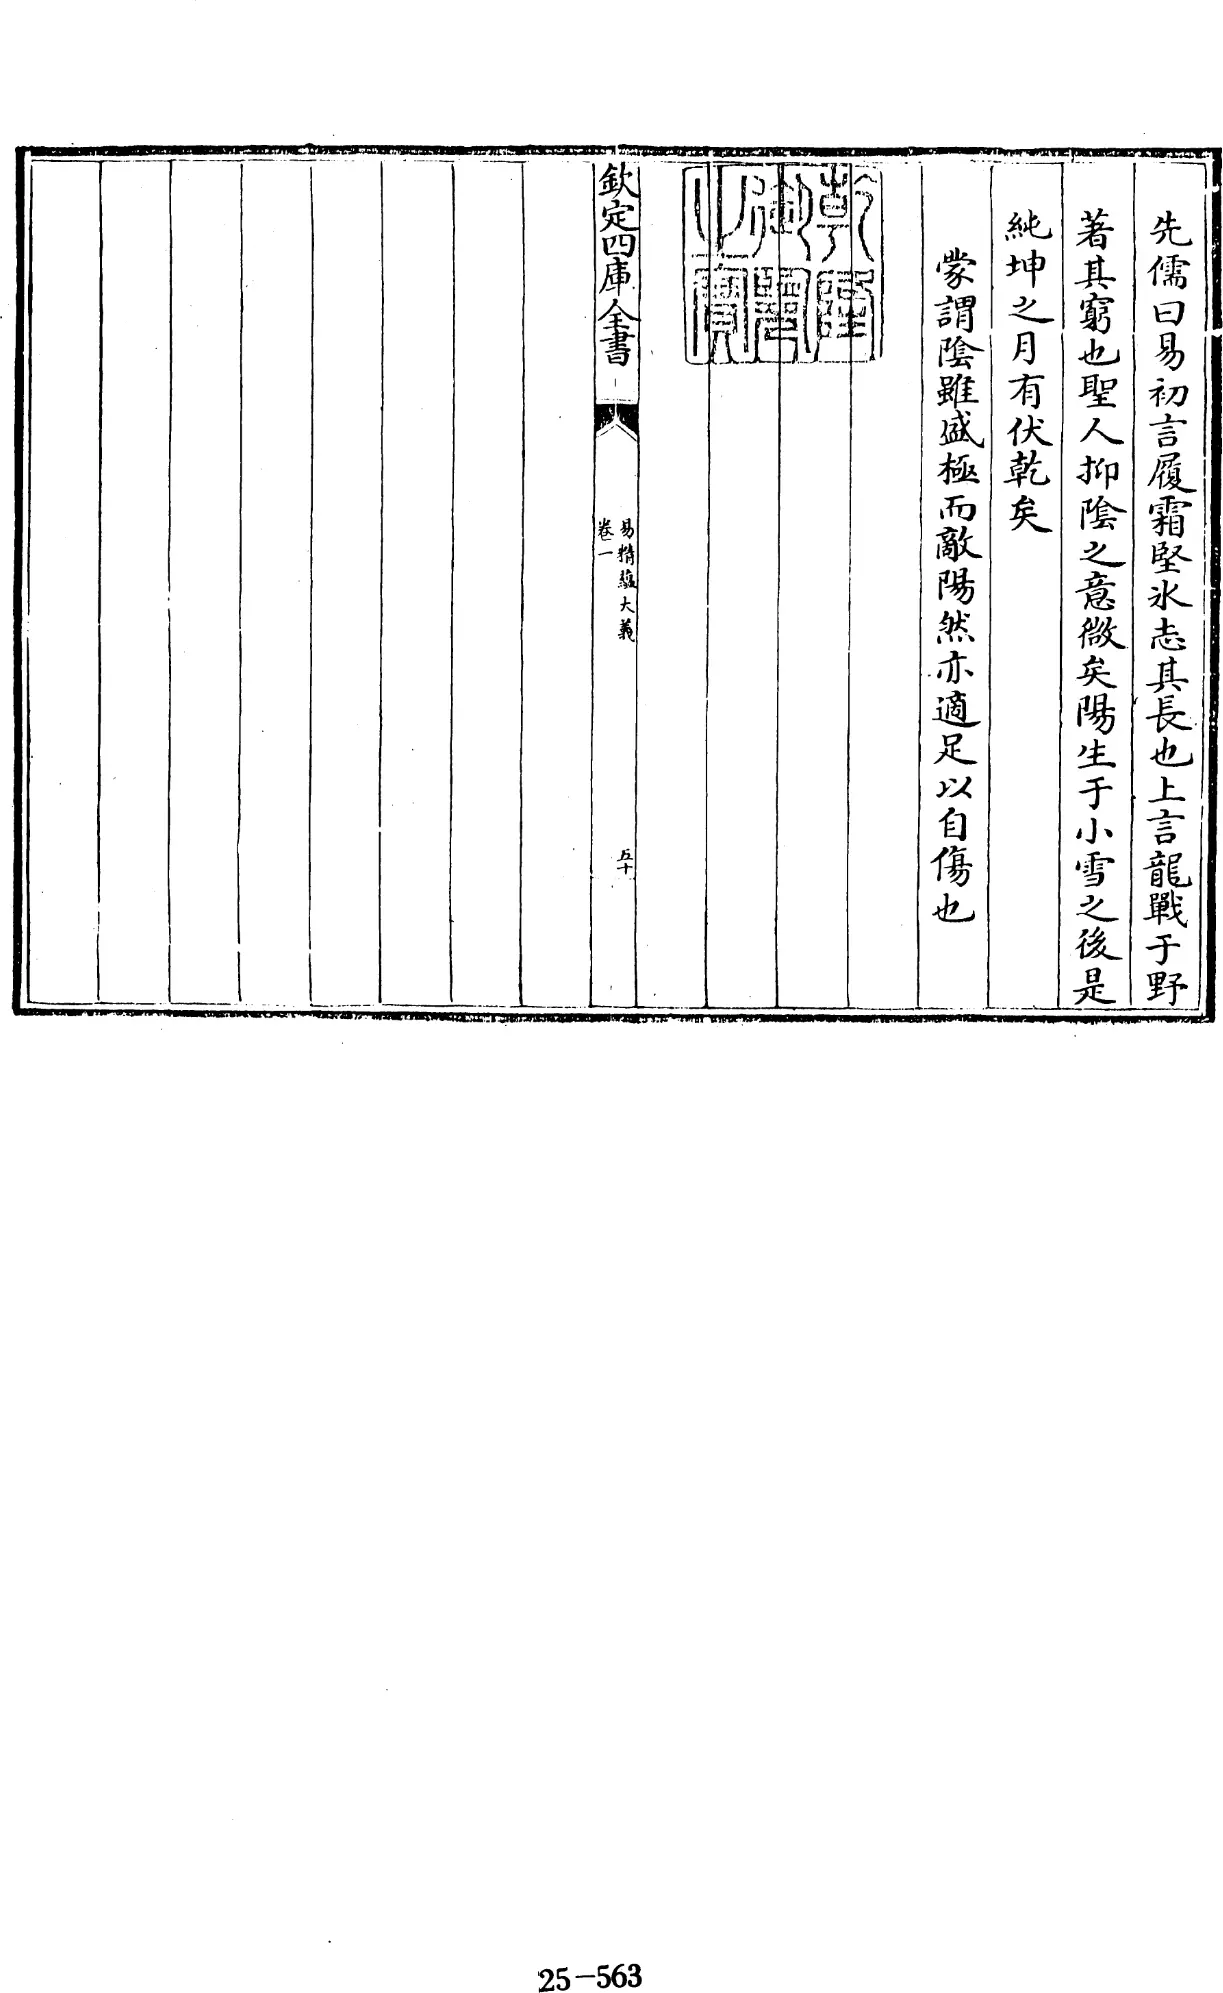 先儒曰易初言履霜堅氷志其長也上言龍戰于野
著其窮也聖人抑陰之意微矣陽生于小雪之後是
純坤之月有伏乾矣
蒙謂陰雖盛極而敵陽然亦適足以自傷也
乾隆御覽之寶
欽定四庫全書
易精蘊大義
卷一
五十
25-563